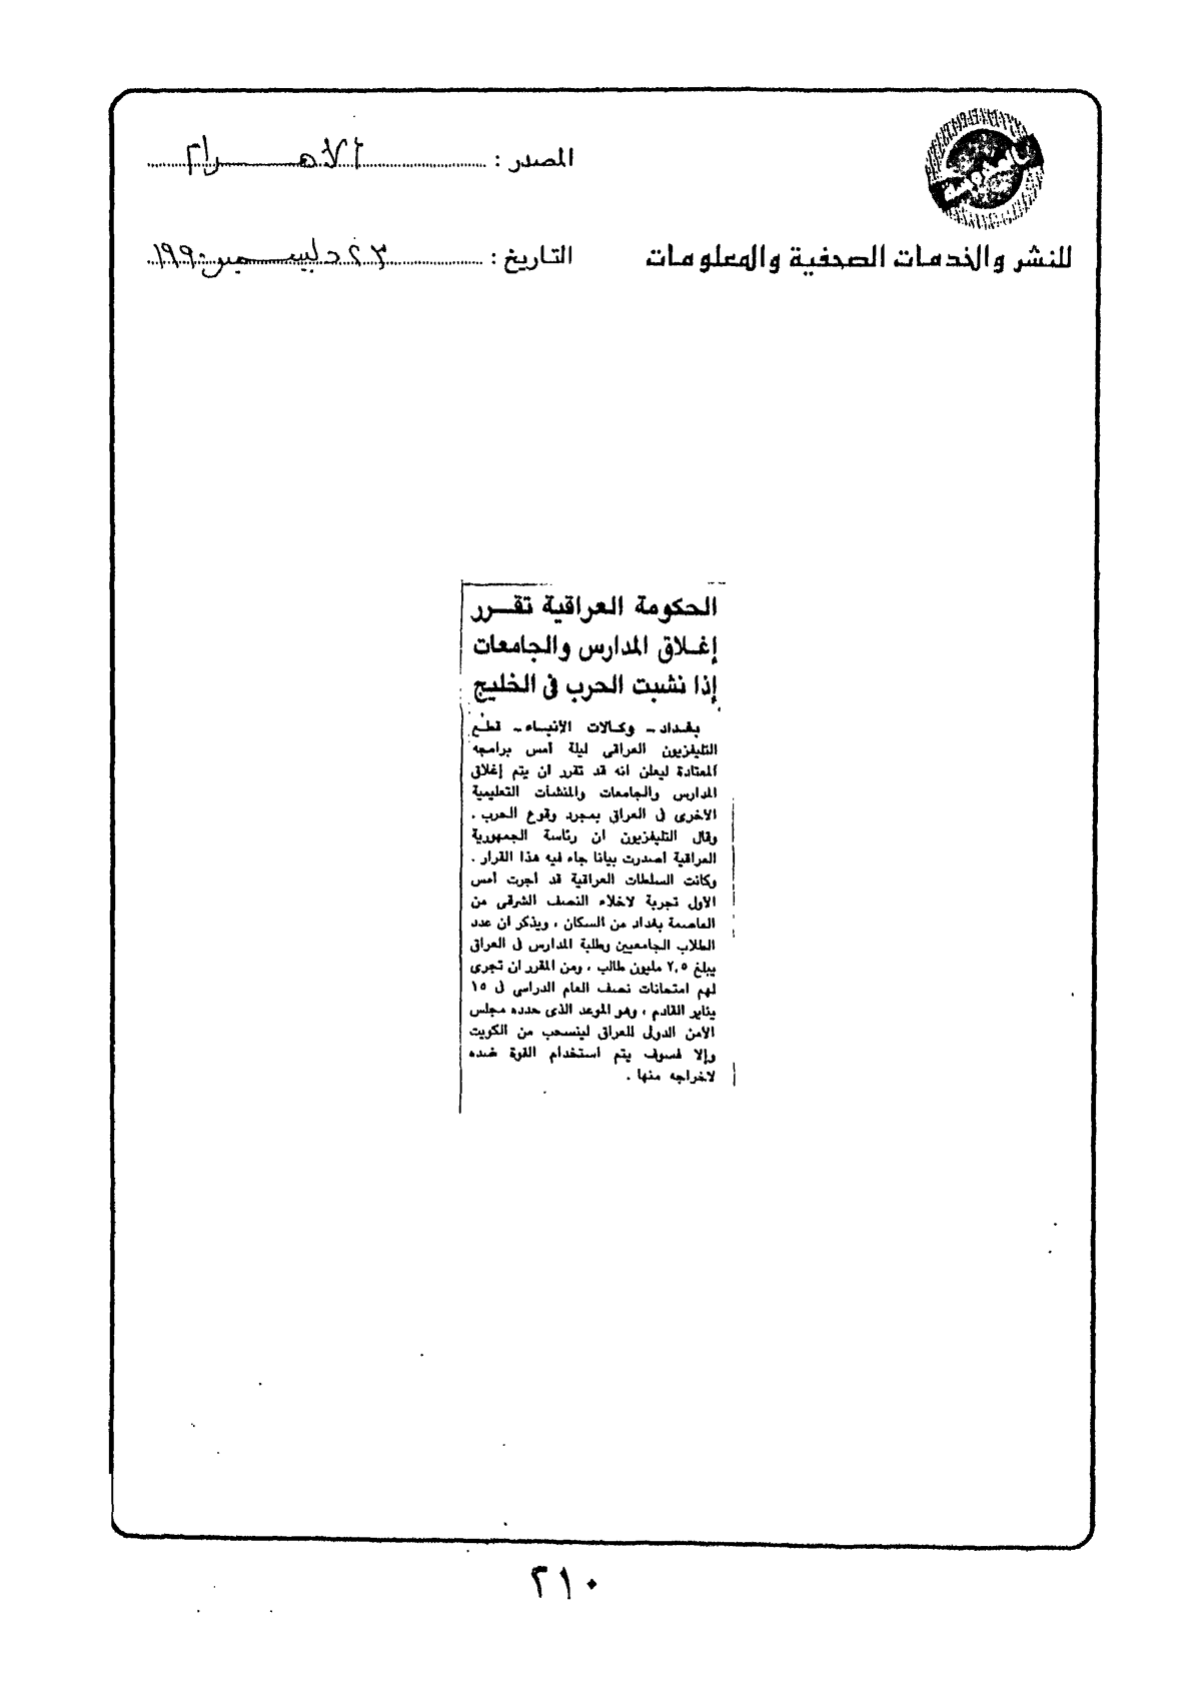 المصدر : الأهرام
للنشر والخدمات الصحفية والمعلومات
التاريخ : ٢٣ ديسمبر ١٩٩٠
الحكومة العراقية تقرر
إغلاق المدارس والجامعات
إذا نشبت الحرب فى الخليج
بغداد ـ وكالات الأنباء ـ قطع
التليفزيون العراقى ليلة أمس برامجه
المعتادة ليعلن انه قد تقرر ان يتم إغلاق
المدارس والجامعات والمنشآت التعليمية
الاخرى فى العراق بمجرد وقوع الحرب .
وقال التليفزيون ان رئاسة الجمهورية
العراقية اصدرت بيانا جاء فيه هذا القرار .
وكانت السلطات العراقية قد أجرت أمس
الأول تجربة لاخلاء النصف الشرقى من
العاصمة بغداد من السكان ، ويذكر ان عدد
الطلاب الجامعيين وطلبة المدارس فى العراق
يبلغ ٢,٥ مليون طالب ، ومن المقرر ان تجرى
لهم امتحانات نصف العام الدراسى فى ١٥
يناير القادم ، وهو الموعد الذى حدده مجلس
الأمن الدولى للعراق لينسحب من الكويت
وإلا فسوف يتم استخدام القوة ضده
لاخراجه منها .
٢١٠